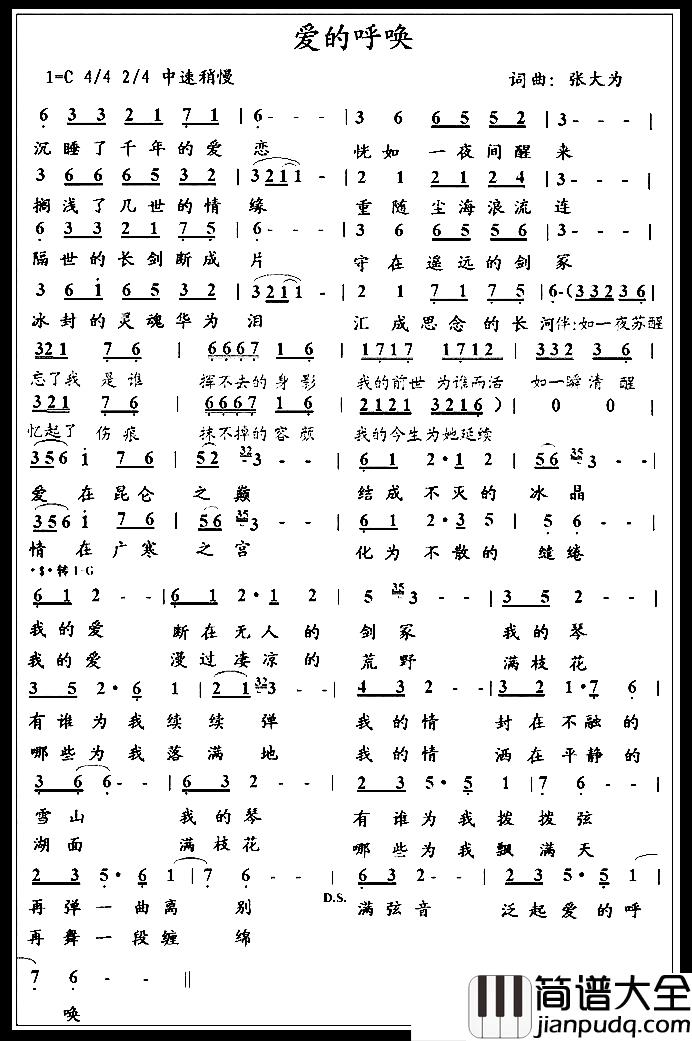 爱的呼唤
1=C 4/4 2/4 中速稍慢 词曲: 张大为
6 3 3 2 1 7 1 | 6 - - - | 3 6 6 5 5 2 | 3 - - - |
沉睡了千年的爱 恋 恍如 一夜间醒 来
3 6 6 6 5 3 2 | 3 2 1 1 - | 2 1 2 1 2 4 | 3 - - - |
搁浅了几世的情 缘 重随 尘海浪流 连
6 3 3 2 1 7 5 | 6 - - - | 3 6 6 5 5 6 | 3 - - - |
隔世的长剑断成 片 守在 遥远的剑 冢
3 6 i 6 5 3 2 | 3 2 1 1 - | 2 1 7 1 7 5 | 6 - ( 3 3 2 3 6 |
冰封的灵魂华为 泪 汇成思念的长 河伴:如一夜苏醒
3 2 1 7 6 | 6 6 6 7 1 6 | 1 7 1 7 1 7 1 2 | 3 3 2 3 6 |
忘了我 是谁 挥不去的身影 我的前世为谁而活 如一瞬清醒
3 2 1 7 6 | 6 6 6 7 1 6 | 2 1 2 1 3 2 1 6 ) | 0 0 |
忆起了 伤痕 抹不掉的容颜 我的今生为她延续
3 5 6 i 7 6 | 5 2 32 3 - - | 6 1 2 · 1 2 | 5 6 35 3 - - |
爱 在昆仑 之 巅 结成 不灭的 冰晶
3 5 6 i 7 6 | 5 6 35 3 - - | 6 1 2 · 3 5 | 5 6 - - |
情 在广寒 之 宫 化为 不散的 缱绻
·$·转1=G
6 1 2 - - | 6 1 2 · 1 2 | 5 35 3 - - | 3 5 2 - - |
我的爱 断在无人的 剑冢 我的琴
我的爱 漫过凄凉的 荒野 满枝花
3 5 2 · 6 1 | 2 1 32 3 - - | 4 3 2 - - | 3 2 1 · 7 6 |
有谁为我续 续弹 我的情 封在不融的
哪些为我落 满地 我的情 洒在平静的
3 6 6 - - | 6 3 2 - - | 2 3 5 · 5 1 | 7 6 - - |
雪山 我的琴 有谁为我拨 拨弦
湖面 满枝花 哪些为我飘 满天
2 3 5 · 6 1 | 7 6 - - | D.S. 6 3 2 - - | 2 3 5 · 5 1 |
再弹一曲离 别 满弦音 泛起爱的呼
再舞一段缠 绵
7 6 - - ||
唤
简谱大全
jianpudq.com